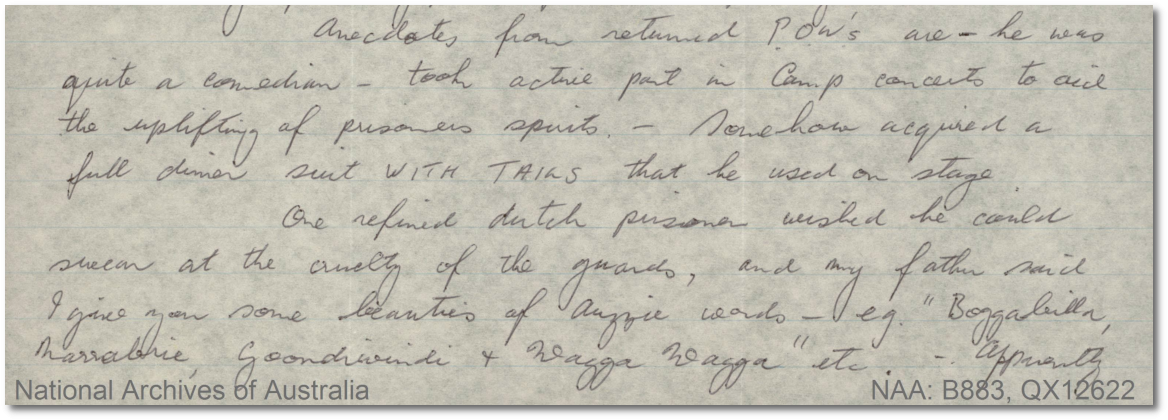 Anecdotes from returned POW's are - he was
quite a comedian - took active part in Camp concerts to aid
the uplifting of prisoners spirits. - Somehow acquired a
full dinner suit WITH TAILS that he used on stage.
One refined dutch prisoner wished he could
swear at the cruelty of the guards, and my father said
I give you some beauties of Auzzie words - eg. "Boggabilla,
Narrabrie, Goondiwindi + Wagga Wagga" etc. - Apparently
National Archives of Australia NAA: B883, QX12622